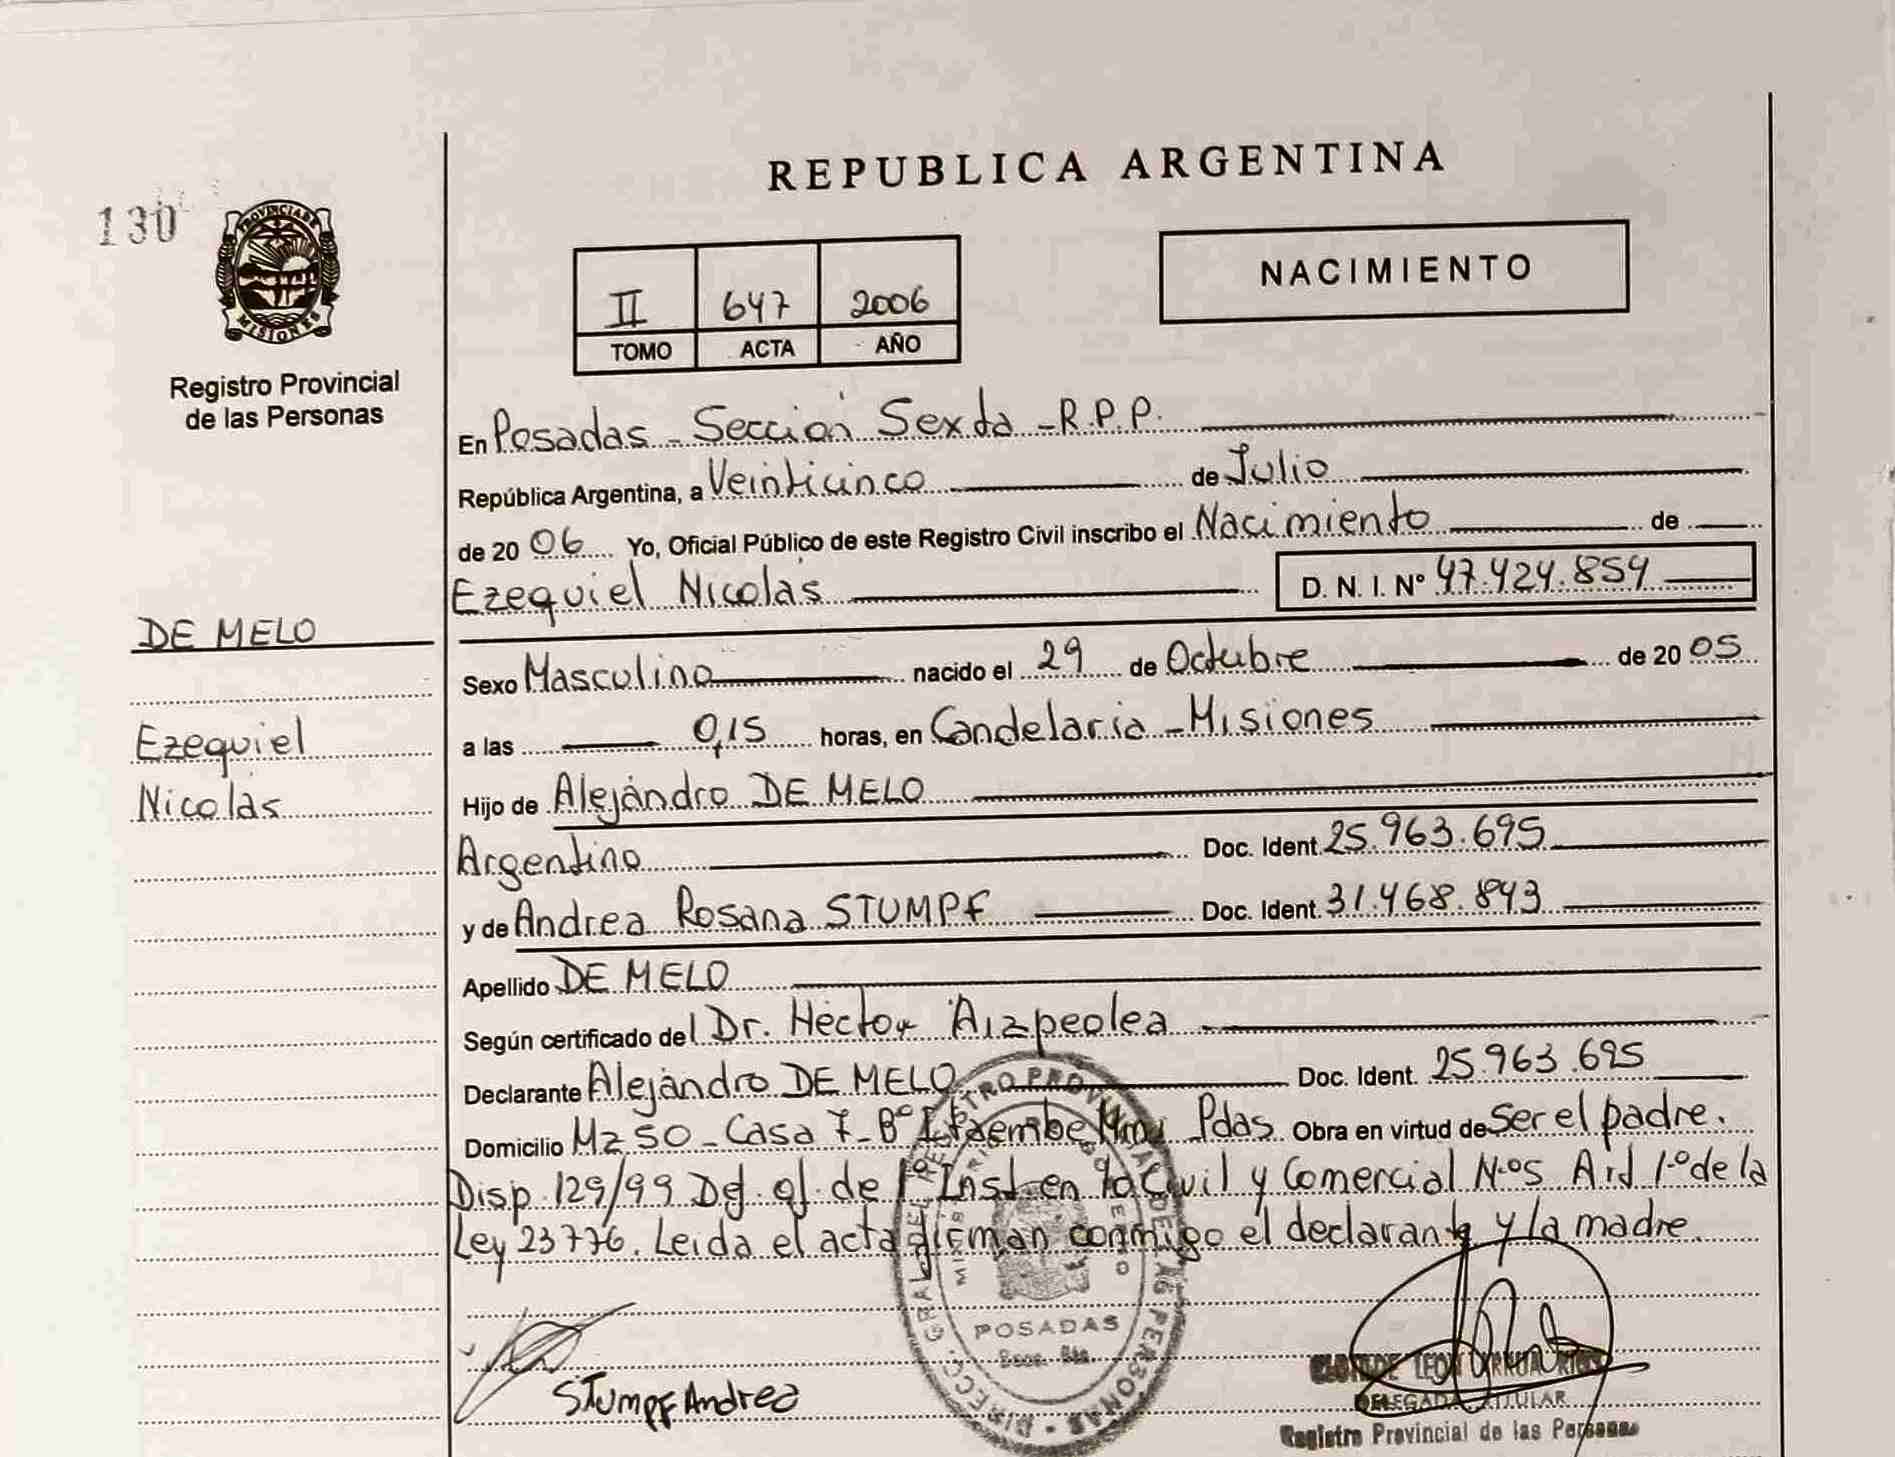 REPUBLICA ARGENTINA
130
PROVINCIA DE
MISIONES
Registro Provincial
de las Personas
II 647 2006
TOMO ACTA AÑO
NACIMIENTO
En Posadas - Sección Sexta - R.P.P.
República Argentina, a Veinticinco de Julio
de 20 06 Yo, Oficial Público de este Registro Civil inscribo el Nacimiento de
Ezequiel Nicolas D. N. I. Nº 47.424.854
DE MELO
Sexo Masculino nacido el 29 de Octubre de 20 05
Ezequiel
a las 0,15 horas, en Candelaria - Misiones
Nicolás
Hijo de Alejándro DE MELO
Argentino Doc. Ident. 25.963.695
y de Andrea Rosana STUMPF Doc. Ident. 31.468.843
Apellido DE MELO
Según certificado del Dr. Héctor Aizpeolea
Declarante Alejándro DE MELO Doc. Ident. 25.963.695
Domicilio Mz 50 - Casa 7 - Bº Itaembe Mini Pdas Obra en virtud de Ser el padre.
Disp. 129/99 de 1º Inst. en Civil y Comercial Nº5 Art 1º de la
Ley 23776. Leida el acta firman conmigo el declarante y la madre.
DIRECC. GRAL. DEL REGISTRO PROVINCIAL DE LAS PERSONAS
POSADAS
STUMPF Andrea
DELEGADA TITULAR
Registro Provincial de las Personas